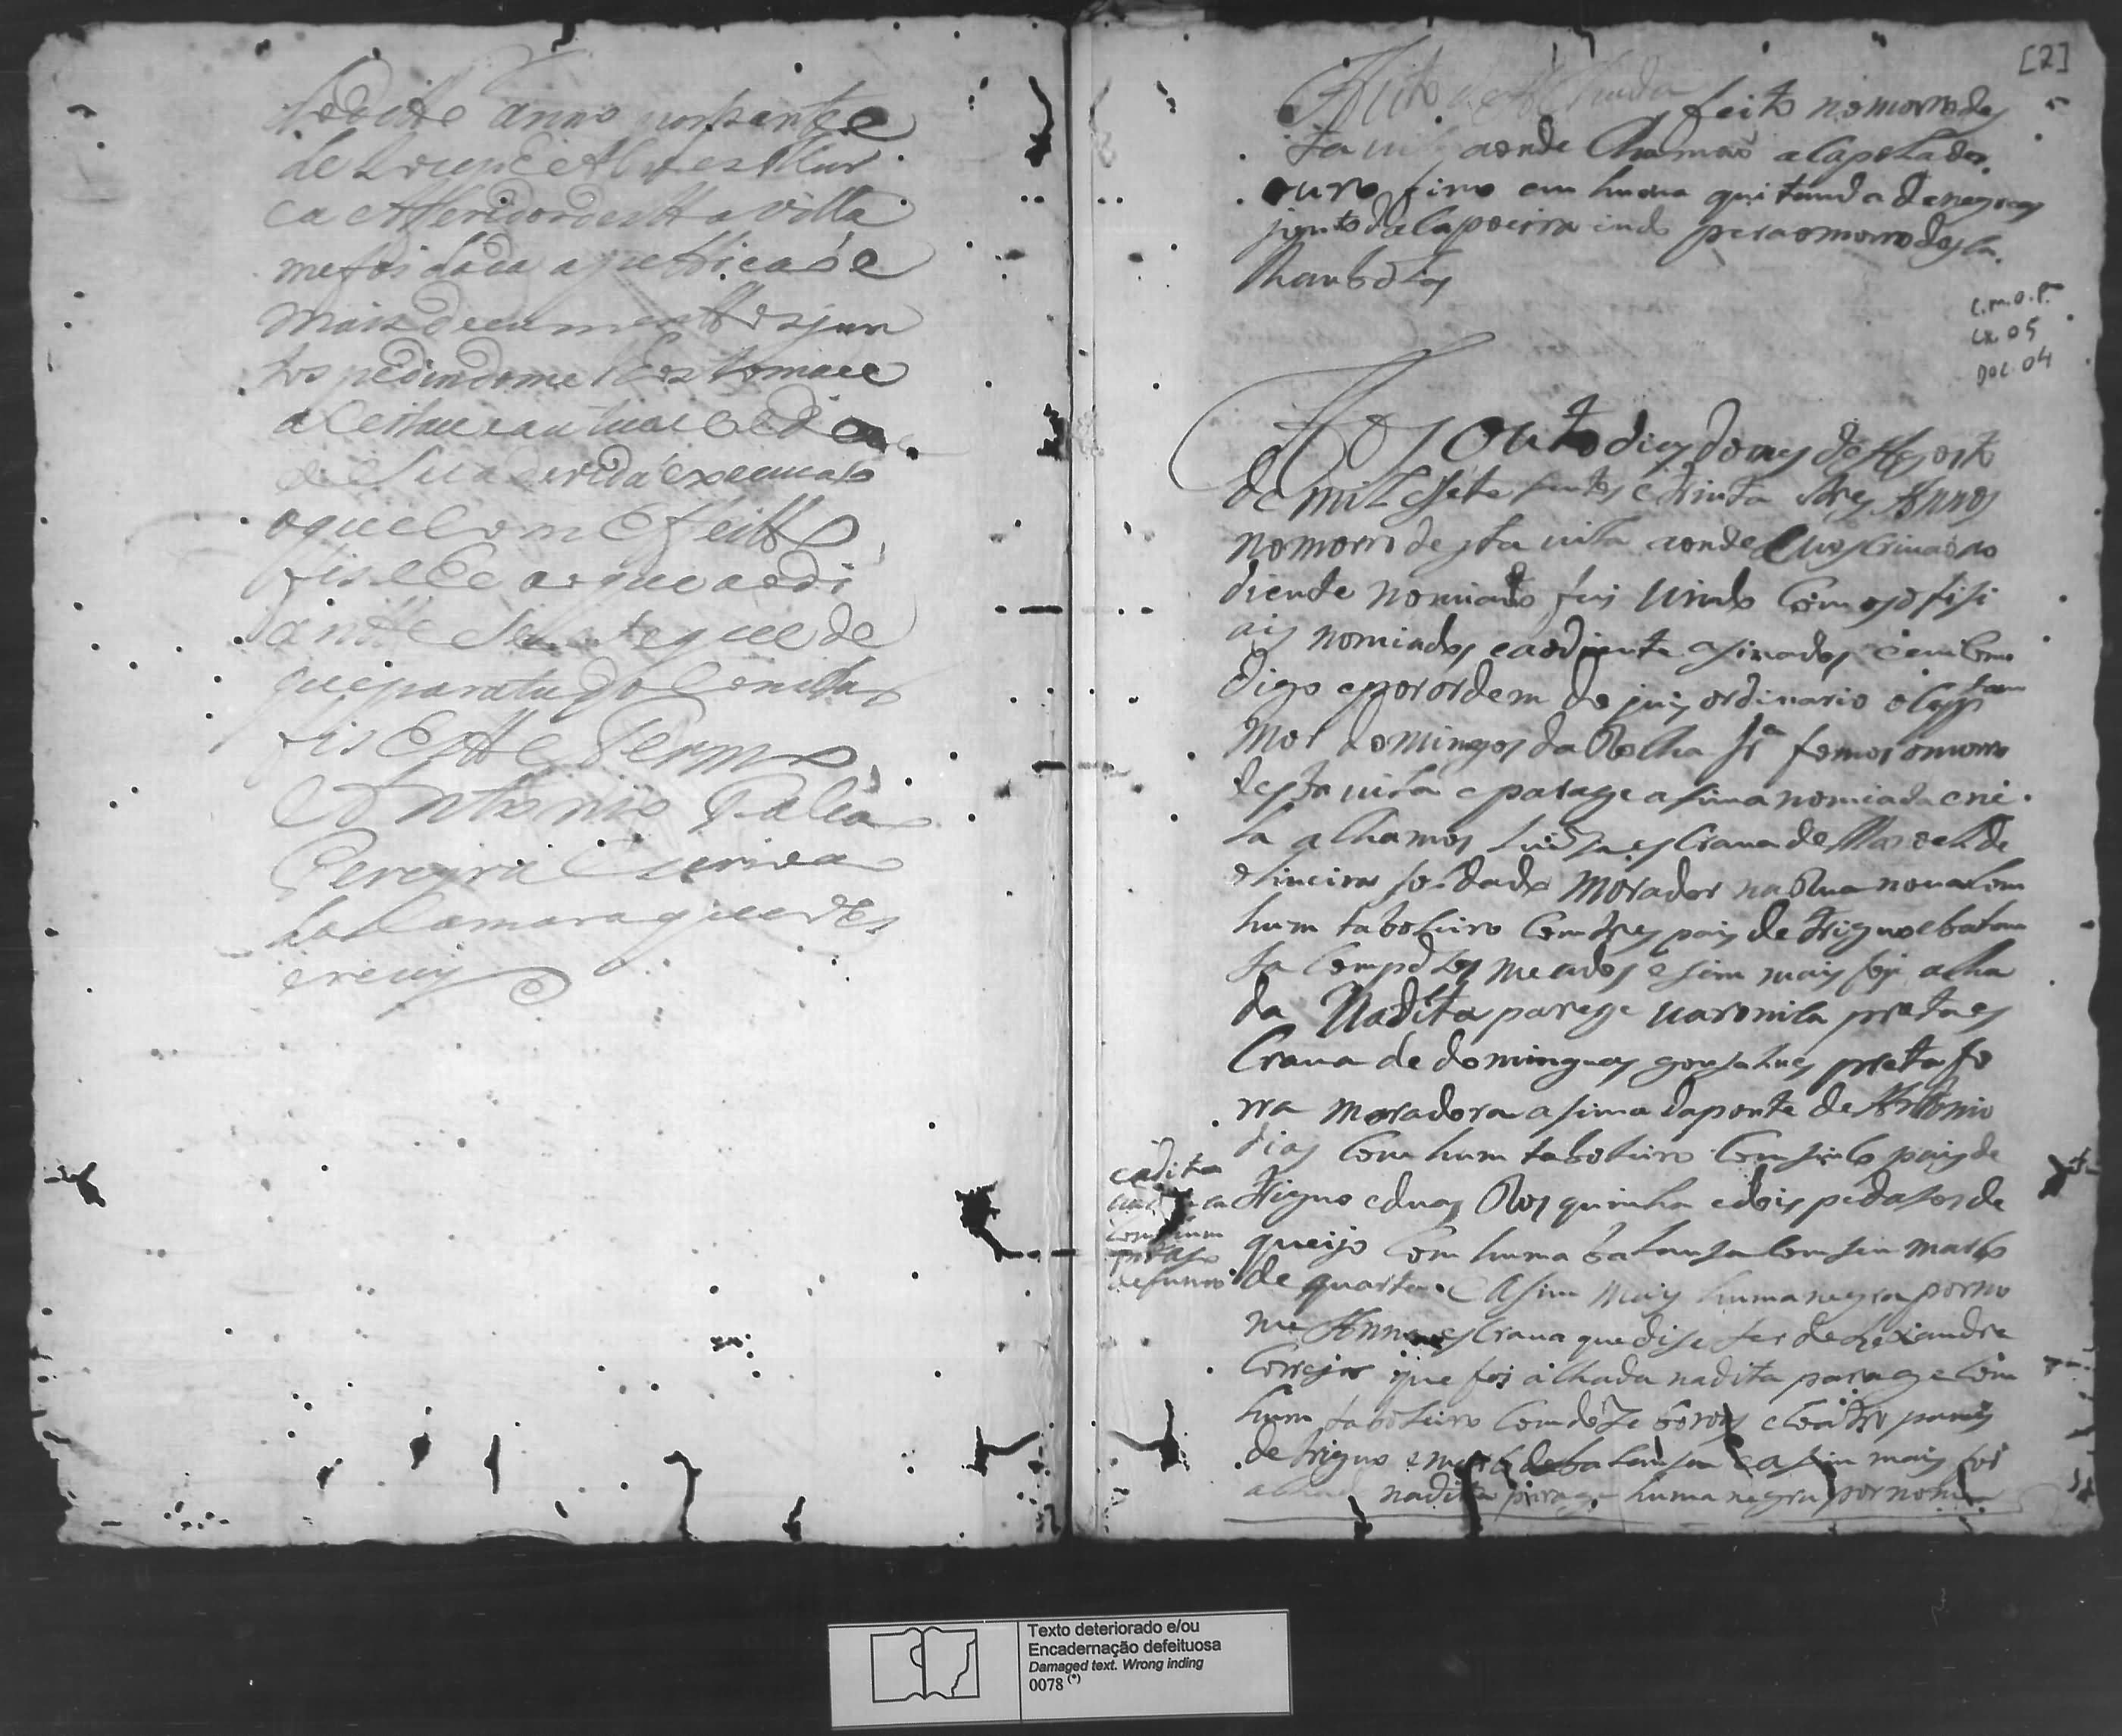 dodito anno por parte
de
ca Aferidor desta villa
me foi dada a petticaõ e
mais documentos jun
tos pedindome lhes tomace
aceitace autuace e
de sua devida execucaõ
o que com effeitto
fis e he o que a odi
ante se segue de
que para tudo constar
fis este termo
Antonio Falcaõ
Pereyra escrivaõ
da Camara que o es
crevy
[2]
Auto de Achada feito no morro des
ta vila aonde chamaõ a Capela do
ouro fino em huma quitanda de negras
junto da capoeira indo pera o morro dos ca
lhanbolas
C.M.O.P.
Cx. 05
Doc. 04
Aos outo dias do mes de Agosto
de mil e sete sentos e trinta e tres Annos
no morro desta vila aonde eu escrivaõ ao
diente nomiado fui vindo com os ofisi
ais nomiados e ao diente asinados e em como
digo e por ordem do juis ordinario o Capp.tam
Mor domingos da Rocha fr.a fomos o morro
desta vila e parage asima nomiada e ne
la achamos Luiza escrava de Manoel de
oliveira soldado morador na Rua nova com
hum taboleiro com tres pais de trigno e balan
sa com pezos meudos e sim mais foi acha
da Na dita parage varonila preta es
crava de dominguas gonsalves preta fo
rra moradora asima da ponte de Antonio
dias com hum taboleiro com sinco pais de
trigno e duas Rosquinha e dois pedasos de
queijo com huma balansa com seu marco
de quarta. e Asim mais huma negra por no
me Anna escrava que dise ser de Alexandre
Correja que foi achada na dita parage com
hum taboleiro com doze boros e coatro panis
de trigno e marco de balansa e asim mais foi
achada na dita parage huma negra por nome
e a dita
com hum
pedaso
de fumo
Texto deteriorado e/ou
Encadernação defeituosa
Damaged text. Wrong inding
0078 (*)